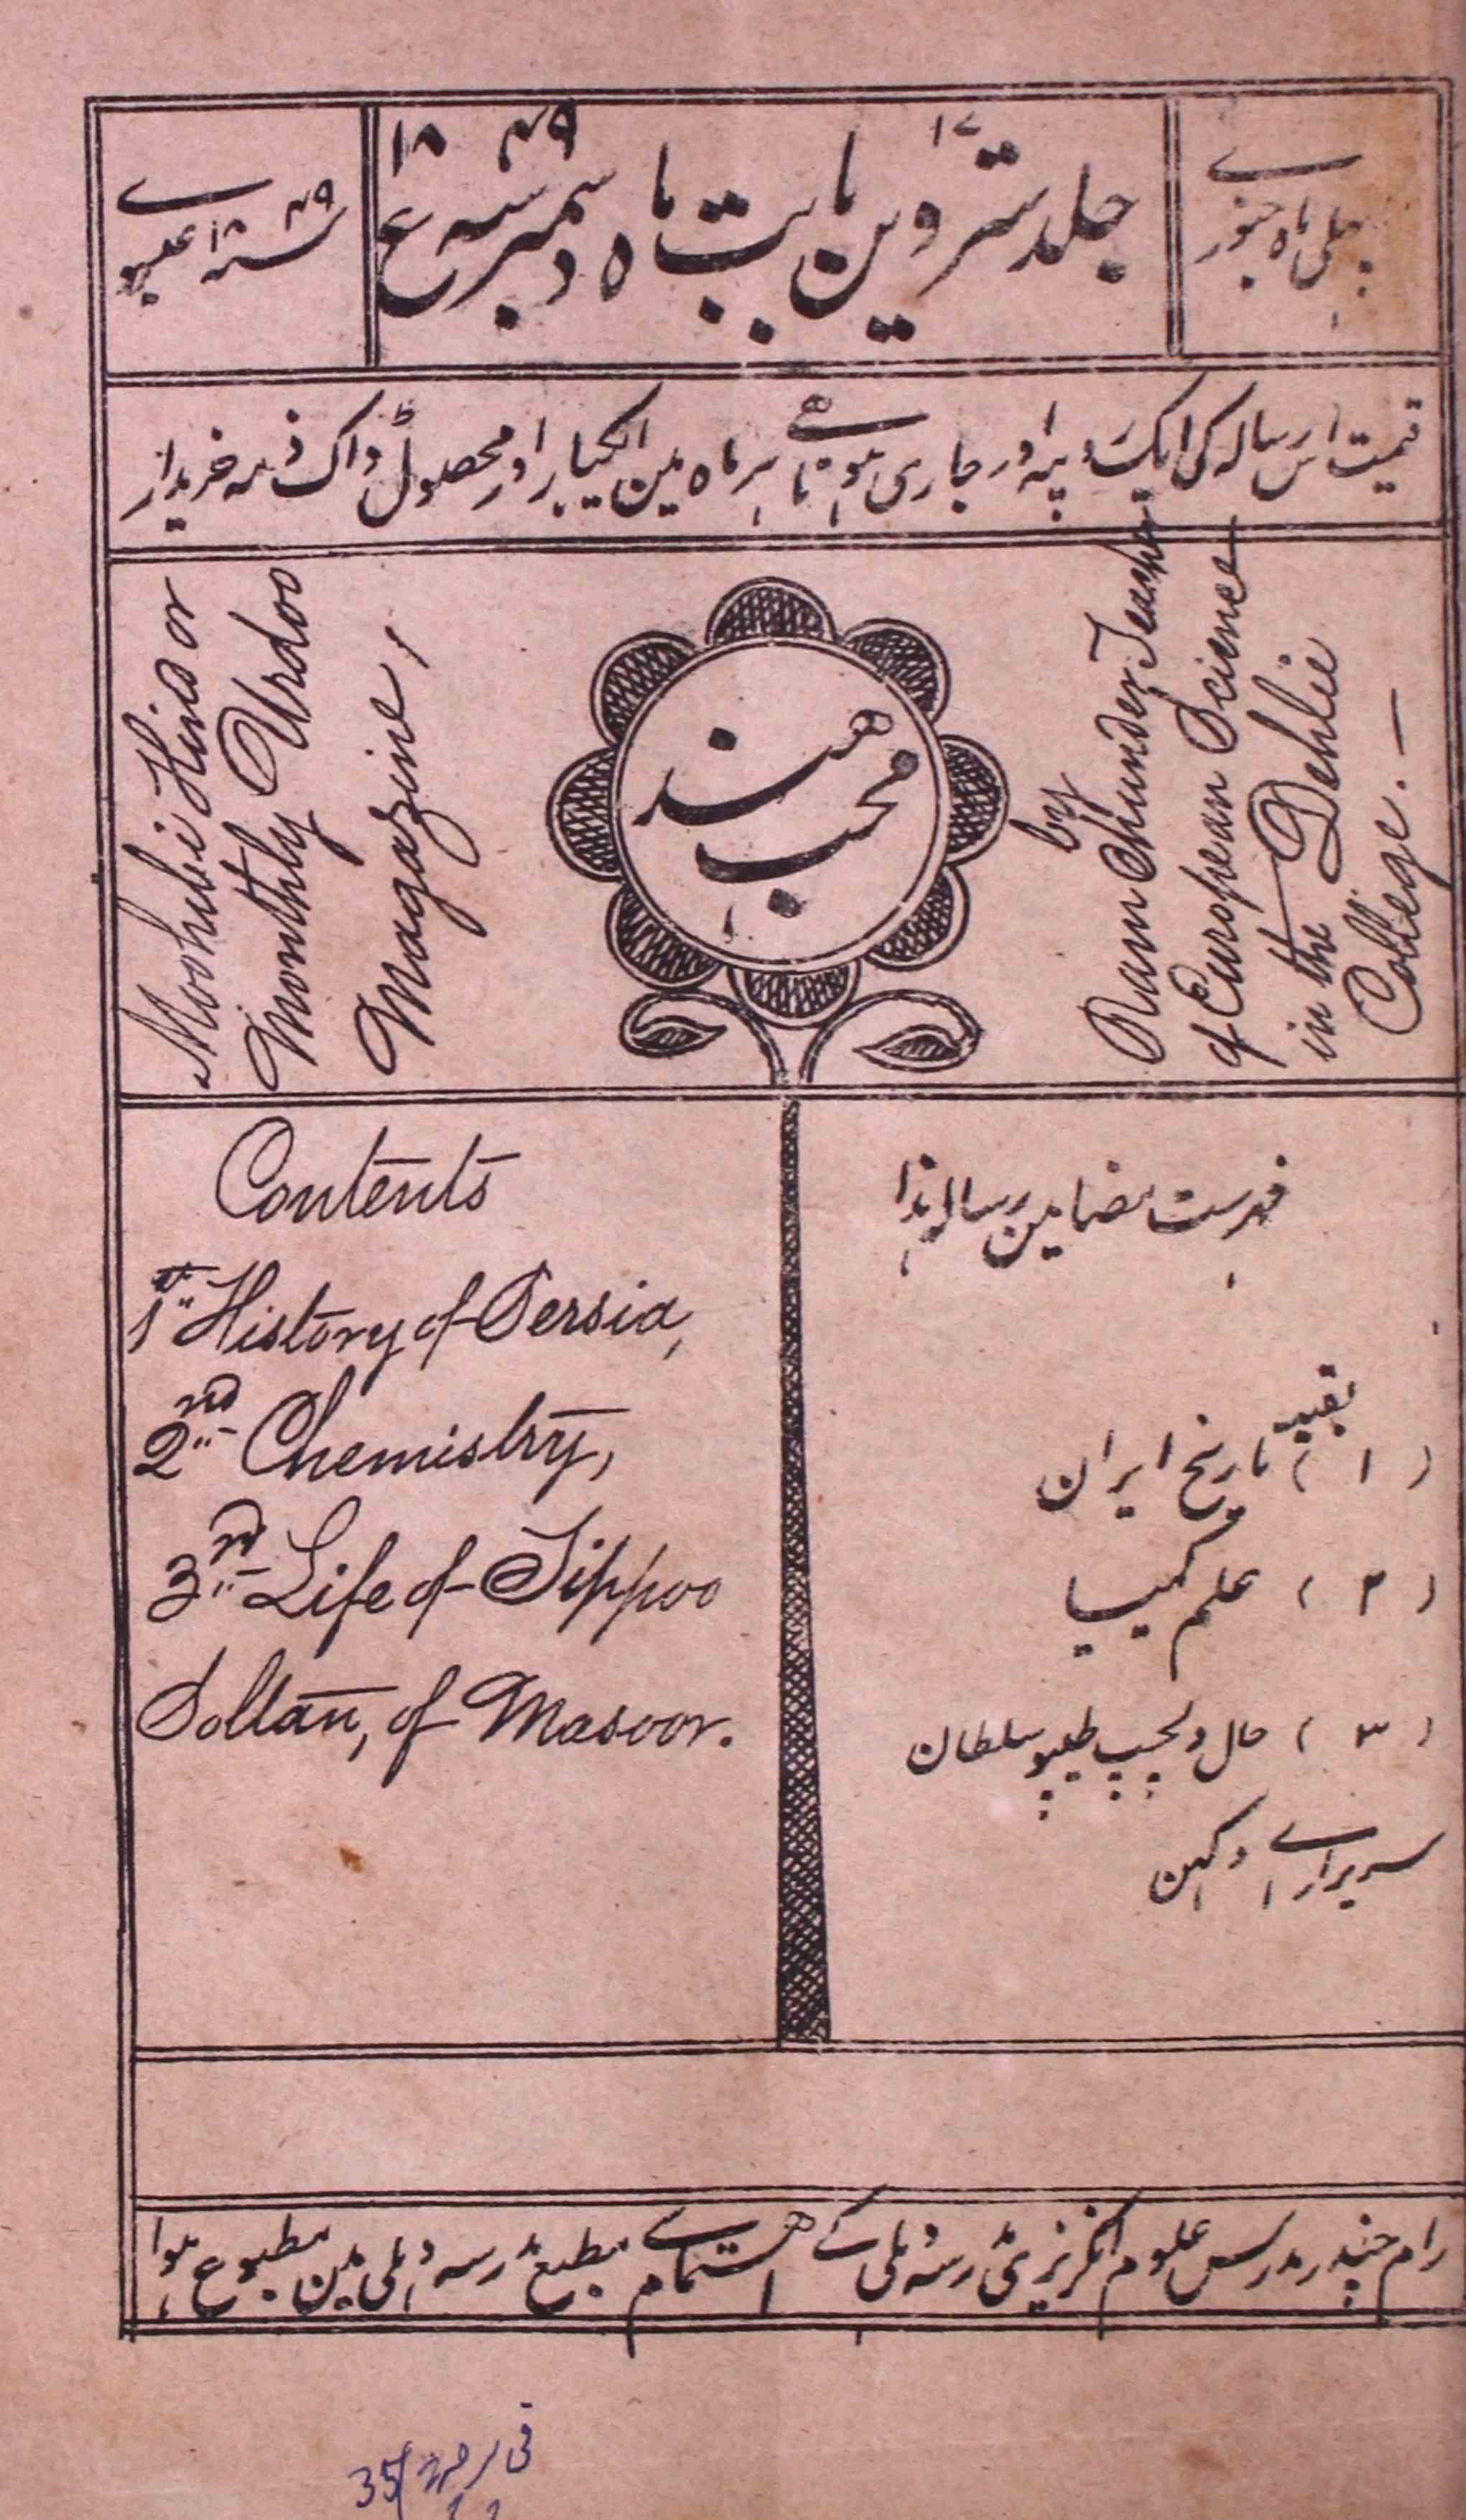 پہلی ماہ جنوری
جلد سترویں ۱۷ بابت ماہ دسمبر سنہ ۱۸۴۹ ع
سنہ ۱۸۴۹ عیسوی
قیمت اس رسالہ کی ایک روپیہ اور جاری ہوتا ہے ہر ماہ مین ایکبار اور محصول ڈاک ذمہ خریدار
Moohubi Hind or
Monthly Urdoo
Magazine,
محب هند
by
Ram Chunder Teacher
of European Science
in the Dehlie
College. —
Contents
1st History of Persia,
2nd Chemistry,
3rd Life of Tippoo
Soltan, of Masoor.
فہرست مضامین رسالہ ہذا
بقیہ
(۱) تاریخ ایران
(۲) علم کیمیا
(۳) حال دلچسپ طیپو سلطان
سریراے دکہن
رام چندر مدرس علوم انگریزی مدرسہ دہلی کے اهتمام سے مطبع مدرسہ دہلی مین مطبوع ہوا
35/